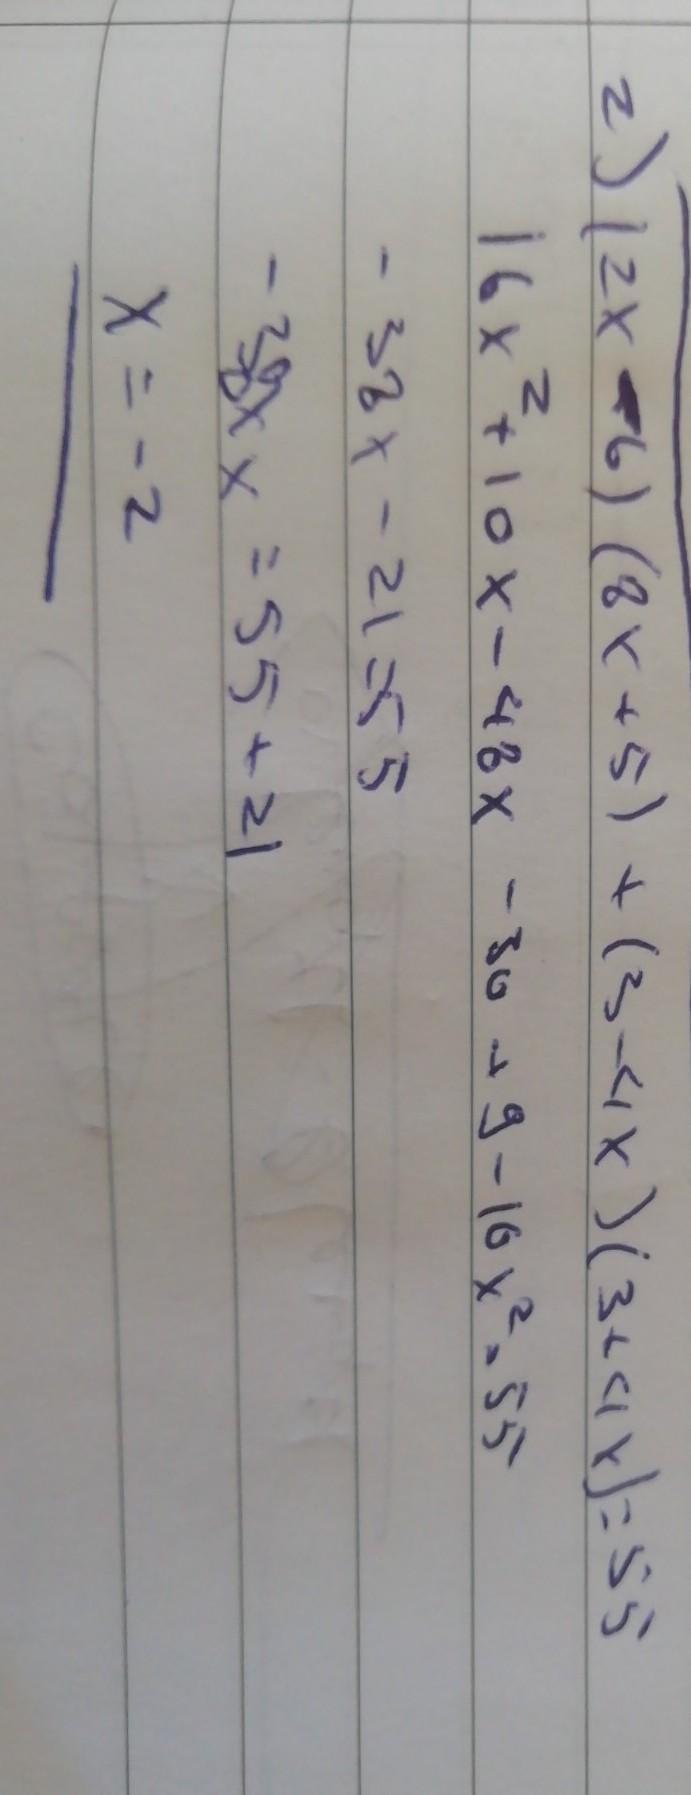 2) (2x-6) (8x+5) + (3-4x)(3+4x)=55
16x²+10x-48x -30+9-16x²=55
-38x-21=55
-38x = 55+21
x=-2